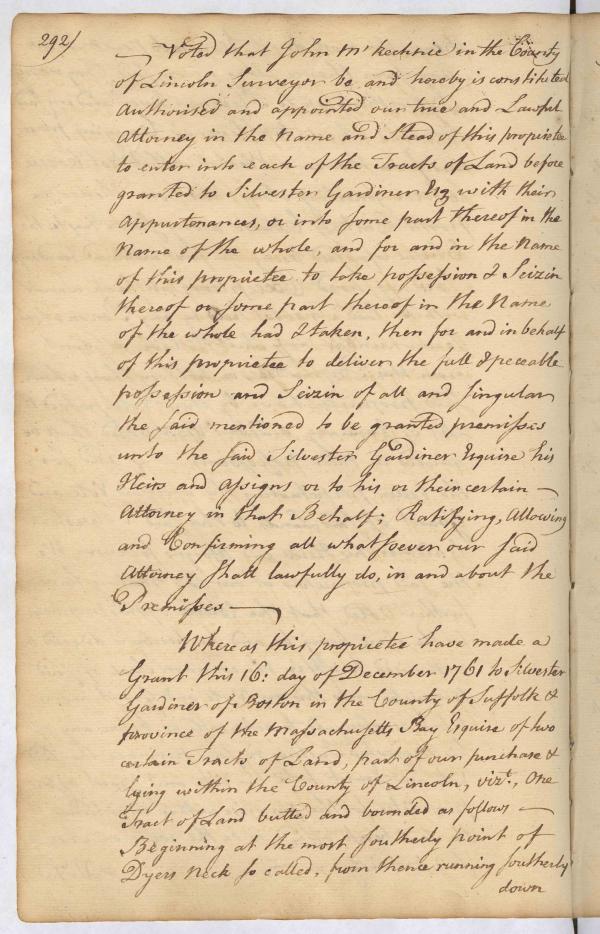 292)
— Voted that John Mc kechnie in the County
of Lincoln Surveyor be and hereby is constituted
Authorised and appointed our true and Lawful
Attorney in the Name and Stead of this propriētee
to enter into each of the Tracts of Land before
granted to Silvester Gardiner Esq with their
Appurtonances, or into some part thereof in the
Name of the whole, and for and in the Name
of this proprietee to take possession & Seizin
thereof or some part thereof in the Name
of the whole had & taken, then for and in behalf
of this proprietee to deliver the full & peceable
possession and Seizin of all and singular
the said mentioned to be granted premisses
unto the said Silvester Gardiner Esquire his
Heirs and Assigns or to his or their certain —
Attorney in that Behalf; Ratifying, Allowing
and Confirming all whatsoever our said
Attorney shall lawfully do, in and about the
Premisses —
Whereas this proprietee have made a
Grant this 16: day of December 1761 to Silvester
Gardiner of Boston in the County of Suffolk &
province of the Massachusetts Bay Esquire of two
certain Tracts of Land, part of our purchase &
lying within the County of Lincoln, vizt., One
Tract of Land butted and bounded as follows —
Beginning at the most southerly point of
Dyers Neck so called, from thence running southerly
down